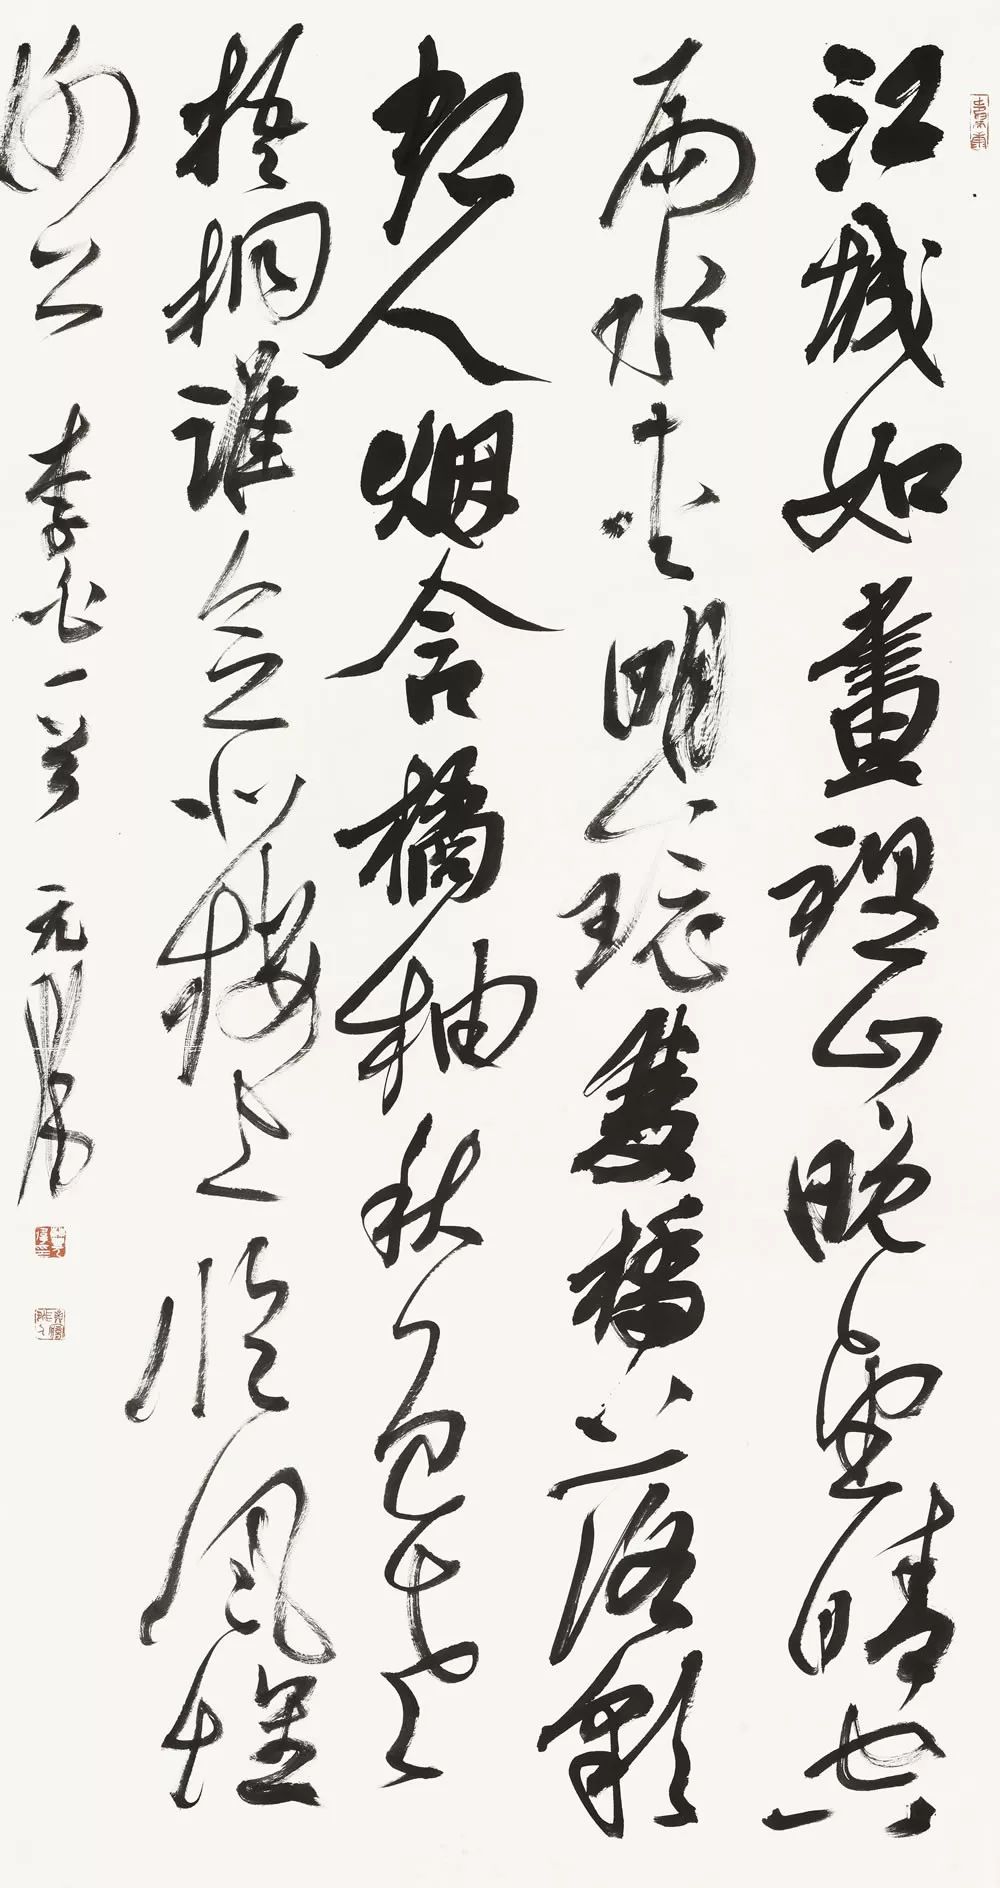 江城如畫裡山晚望晴空
兩水夾明鏡雙橋落彩
虹人烟含橘柚秋色老
梧桐誰念北樓上臨風懷
謝公 李白一首 元